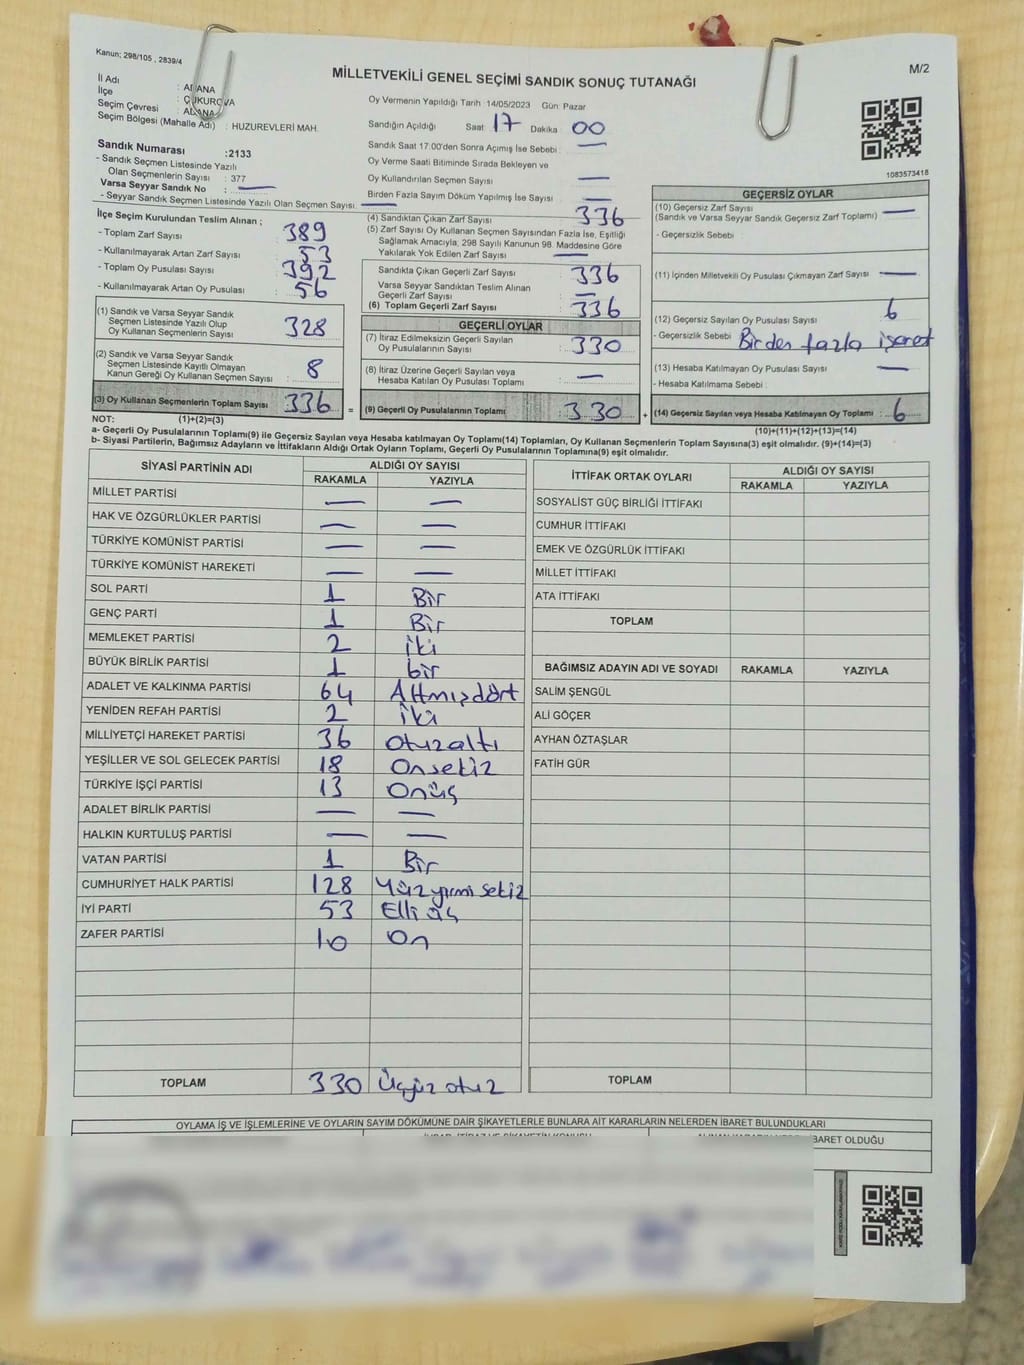 Kanun; 298/105 , 2839/4
M/2
MİLLETVEKİLİ GENEL SEÇİMİ SANDIK SONUÇ TUTANAĞI
İl Adı : ADANA
İlçe : ÇUKUROVA
Seçim Çevresi : ADANA
Seçim Bölgesi (Mahalle Adı) : HUZUREVLERİ MAH.
Oy Vermenin Yapıldığı Tarih :14/05/2023 Gün: Pazar
Sandığın Açıldığı Saat : 17 Dakika : 00
Sandık Saat 17:00'den Sonra Açımış İse Sebebi : —
Oy Verme Saati Bitiminde Sırada Bekleyen ve
Oy Kullandırılan Seçmen Sayısı : —
Birden Fazla Sayım Döküm Yapılmış İse Sayısı : —
1083573418
Sandık Numarası :2133
- Sandık Seçmen Listesinde Yazılı
Olan Seçmenlerin Sayısı : 377
Varsa Seyyar Sandık No : —
- Seyyar Sandık Seçmen Listesinde Yazılı Olan Seçmen Sayısı : —
İlçe Seçim Kurulundan Teslim Alınan ;
- Toplam Zarf Sayısı : 389
- Kullanılmayarak Artan Zarf Sayısı : 53
- Toplam Oy Pusulası Sayısı : 392
- Kullanılmayarak Artan Oy Pusulası : 56
(1) Sandık ve Varsa Seyyar Sandık
Seçmen Listesinde Yazılı Olup
Oy Kullanan Seçmenlerin Sayısı : 328
(2) Sandık ve Varsa Seyyar Sandık
Seçmen Listesinde Kayıtlı Olmayan
Kanun Gereği Oy Kullanan Seçmen Sayısı : 8
(3) Oy Kullanan Seçmenlerin Toplam Sayısı : 336 =
(4) Sandıktan Çıkan Zarf Sayısı : 336
(5) Zarf Sayısı Oy Kullanan Seçmen Sayısından Fazla İse, Eşitliği
Sağlamak Amacıyla, 298 Sayılı Kanunun 98. Maddesine Göre
Yakılarak Yok Edilen Zarf Sayısı : —
Sandıkta Çıkan Geçerli Zarf Sayısı : 336
Varsa Seyyar Sandıktan Teslim Alınan
Geçerli Zarf Sayısı : —
(6) Toplam Geçerli Zarf Sayısı : 336
GEÇERLİ OYLAR
(7) İtiraz Edilmeksizin Geçerli Sayılan
Oy Pusulalarının Sayısı : 330
(8) İtiraz Üzerine Geçerli Sayılan veya
Hesaba Katılan Oy Pusulası Toplamı : —
(9) Geçerli Oy Pusulalarının Toplamı : 330 +
GEÇERSİZ OYLAR
(10) Geçersiz Zarf Sayısı
(Sandık ve Varsa Seyyar Sandık Geçersiz Zarf Toplamı) : —
- Geçersizlik Sebebi :
(11) İçinden Milletvekili Oy Pusulası Çıkmayan Zarf Sayısı : —
(12) Geçersiz Sayılan Oy Pusulası Sayısı : 6
- Geçersizlik Sebebi : Birden fazla işaret
(13) Hesaba Katılmayan Oy Pusulası Sayısı : —
- Hesaba Katılmama Sebebi :
(14) Geçersiz Sayılan veya Hesaba Katılmayan Oy Toplamı : 6
NOT: (1)+(2)=(3)
(10)+(11)+(12)+(13)=(14)
a- Geçerli Oy Pusulalarının Toplamı(9) ile Geçersiz Sayılan veya Hesaba katılmayan Oy Toplamı(14) Toplamları, Oy Kullanan Seçmenlerin Toplam Sayısına(3) eşit olmalıdır. (9)+(14)=(3)
b- Siyasi Partilerin, Bağımsız Adayların ve İttifakların Aldığı Ortak Oyların Toplamı, Geçerli Oy Pusulalarının Toplamına(9) eşit olmalıdır.
SİYASİ PARTİNİN ADI ALDIĞI OY SAYISI
RAKAMLA YAZIYLA
MİLLET PARTİSİ — —
HAK VE ÖZGÜRLÜKLER PARTİSİ — —
TÜRKİYE KOMÜNİST PARTİSİ — —
TÜRKİYE KOMÜNİST HAREKETİ — —
SOL PARTİ 1 Bir
GENÇ PARTİ 1 Bir
MEMLEKET PARTİSİ 2 iki
BÜYÜK BİRLİK PARTİSİ 1 bir
ADALET VE KALKINMA PARTİSİ 64 Altmışdört
YENİDEN REFAH PARTİSİ 2 iki
MİLLİYETÇİ HAREKET PARTİSİ 36 otuzaltı
YEŞİLLER VE SOL GELECEK PARTİSİ 18 Onsekiz
TÜRKİYE İŞÇİ PARTİSİ 13 Onüç
ADALET BİRLİK PARTİSİ — —
HALKIN KURTULUŞ PARTİSİ — —
VATAN PARTİSİ 1 Bir
CUMHURİYET HALK PARTİSİ 128 Yüzyirmi sekiz
İYİ PARTİ 53 Elli üç
ZAFER PARTİSİ 10 On
TOPLAM 330 Üçyüz otuz
İTTİFAK ORTAK OYLARI ALDIĞI OY SAYISI
RAKAMLA YAZIYLA
SOSYALİST GÜÇ BİRLİĞİ İTTİFAKI
CUMHUR İTTİFAKI
EMEK VE ÖZGÜRLÜK İTTİFAKI
MİLLET İTTİFAKI
ATA İTTİFAKI
TOPLAM
BAĞIMSIZ ADAYIN ADI VE SOYADI RAKAMLA YAZIYLA
SALİM ŞENGÜL
ALİ GÖÇER
AYHAN ÖZTAŞLAR
FATİH GÜR
TOPLAM
OYLAMA İŞ VE İŞLEMLERİNE VE OYLARIN SAYIM DÖKÜMÜNE DAİR ŞİKAYETLERLE BUNLARA AİT KARARLARIN NELERDEN İBARET BULUNDUKLARI
İBARET OLDUĞU